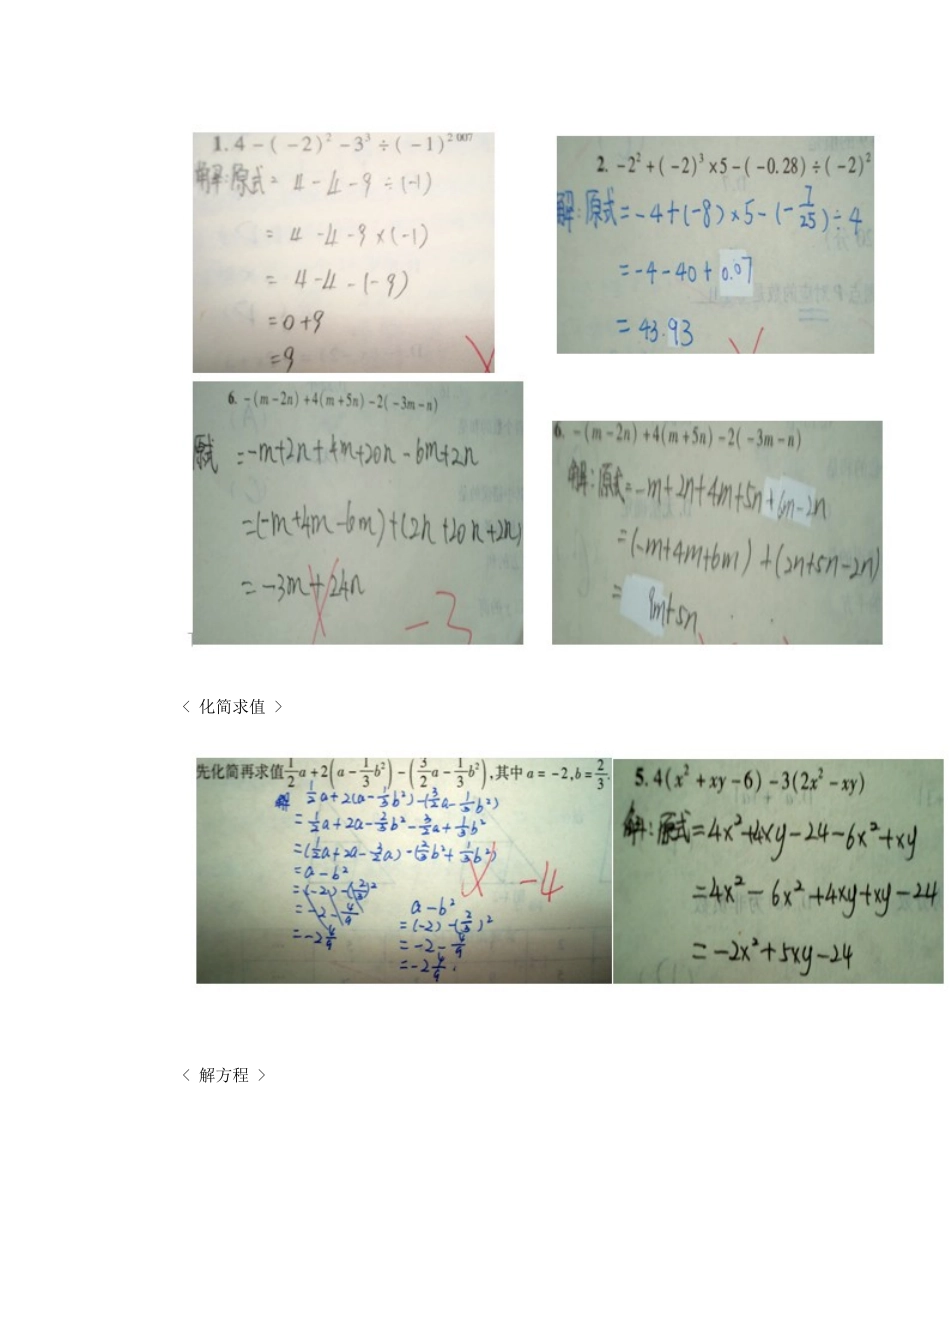 1. 4-(-2)²-3³÷(-1)²⁰⁰⁷
解:原式= 4-4-9÷(-1)
= 4-4-9×(-1)
= 4-4-(-9)
=0+9
=9
2. -2²+(-2)³×5-(-0.28)÷(-2)²
解:原式=-4+(-8)×5-(-7/25)÷4
=-4-40+0.07
=43.93
6. -(m-2n)+4(m+5n)-2(-3m-n)
原式=-m+2n+4m+20n-6m+2n
=(-m+4m-6m)+(2n+20n+2n)
=-3m+24n
-3
6. -(m-2n)+4(m+5n)-2(-3m-n)
解:原式=-m+2n+4m+5n+6m-2n
=(-m+4m+6m)+(2n+5n-2n)
= 9m+5n
< 化简求值 >
先化简再求值1/2a+2(a-1/3b²)-(3/2a-1/3b²),其中a=-2,b=2/3.
解 1/2a+2(a-1/3b²)-(3/2a-1/3b²)
=1/2a+2a-2/3b²-3/2a+1/3b²
=(1/2a+2a-3/2a)-(2/3b²+1/3b²)
=a-b²
=(-2)-(2/3)²
=-2-4/9
=-2 4/9
a-b²
=(-2)-(2/3)²
=-2-4/9
=-2 4/9.
-4
5. 4(x²+xy-6)-3(2x²-xy)
解:原式=4x²+4xy-24-6x²+xy
=4x²-6x²+4xy+xy-24
=-2x²+5xy-24
< 解方程 >